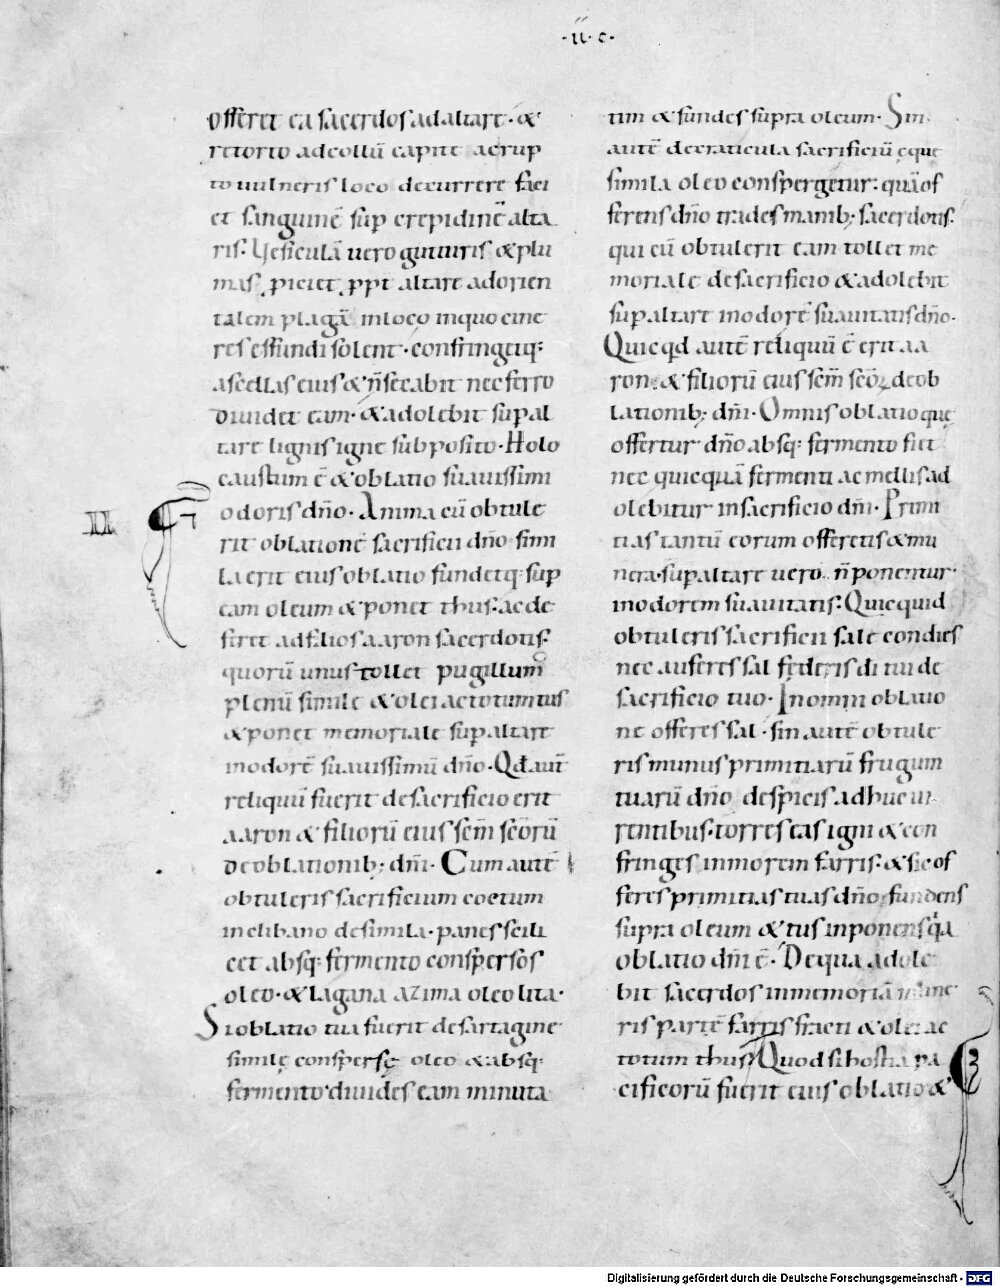 ·ii· c·
offeret ea sacerdos ad altare· &
retorto ad collū capite ac rup
to uulneris loco decurrere faci
et sanguinē sup crepidinē alta
ris. Uesiculā uero gutturis & plu
mas ꝓiciet ꝓpt altare ad orien
talem plagā in loco in quo cine
res effundi solent· confringetq;
ascellas eius & ñ secabit nec ferro
diuidet eam· & adolebit sup al
tare lignis igne subposito· Holo
caustum ē & oblatio suauissimi
odoris dño· Anima cū obtule
II
rit oblationē sacrificii dño simi
la erit eius oblatio fundetq; sup
eam oleum & ponet thus· ac de
feret ad filios aaron sacerdotis
quorū unus tollet pugillum
plenū simile & olei ac totum tus
& ponet memoriale sup altare
in odorē suauissimū dño· Qd aut̄
reliquū fuerit de sacrificio erit
aaron & filiorū eius sc̄m sc̄orū
de oblationib; dñi· Cum autē
obtuleris sacrificium coctum
in clibano de simila· panes scili
cet absq; fermento conspersos
oleo· & lagana azima oleo lita·
Si oblatio tua fuerit de sartagine
similę conspersę oleo & absq;
fermento diuides eam minuta
tim & fundes supra oleum· Sin
autē de craticula sacrificiū ęque
simila oleo conspergetur· quā of
ferens dño trades manib; sacerdotis
qui cū obtulerit eam tollet me
moriale de sacrificio & adolebit
sup altare in odorē suauitatis dño·
Quicqd autē reliquū ē erit aa
ron· & filiorū eius sc̄m sc̄oꝝ de ob
lationib; dñi· Omnis oblatio quę
offertur dño absq; fermento fiet
nec quicquā fermenti ac mellis ad
olebitur in sacrificio dñi· Primi
tias tantū eorum offeretis & mu
nera· sup altare uero ñ ponentur
in odorem suauitatis· Quicquid
obtuleris sacrificii sale condies
nec auferes sal fęderis di tui de
sacrificio tuo· In omni oblatio
ne offeres sal· sin autē obtule
ris munus primitiarū frugum
tuarū dño de spicis adhuc ui
rentibus· torres eas igni & con
fringes in morem farris· & sic of
feres primitias tuas dño· fundens
supra oleum & tus inponens qa
oblatio dñi ē· De qua adole
bit sacerdos in memoriā mune
ris partē farris fracti & olei ac
totum thus· Quod si hostia pa
cificorū fuerit eius oblatio &
Digitalisierung gefördert durch die Deutsche Forschungsgemeinschaft - DFG